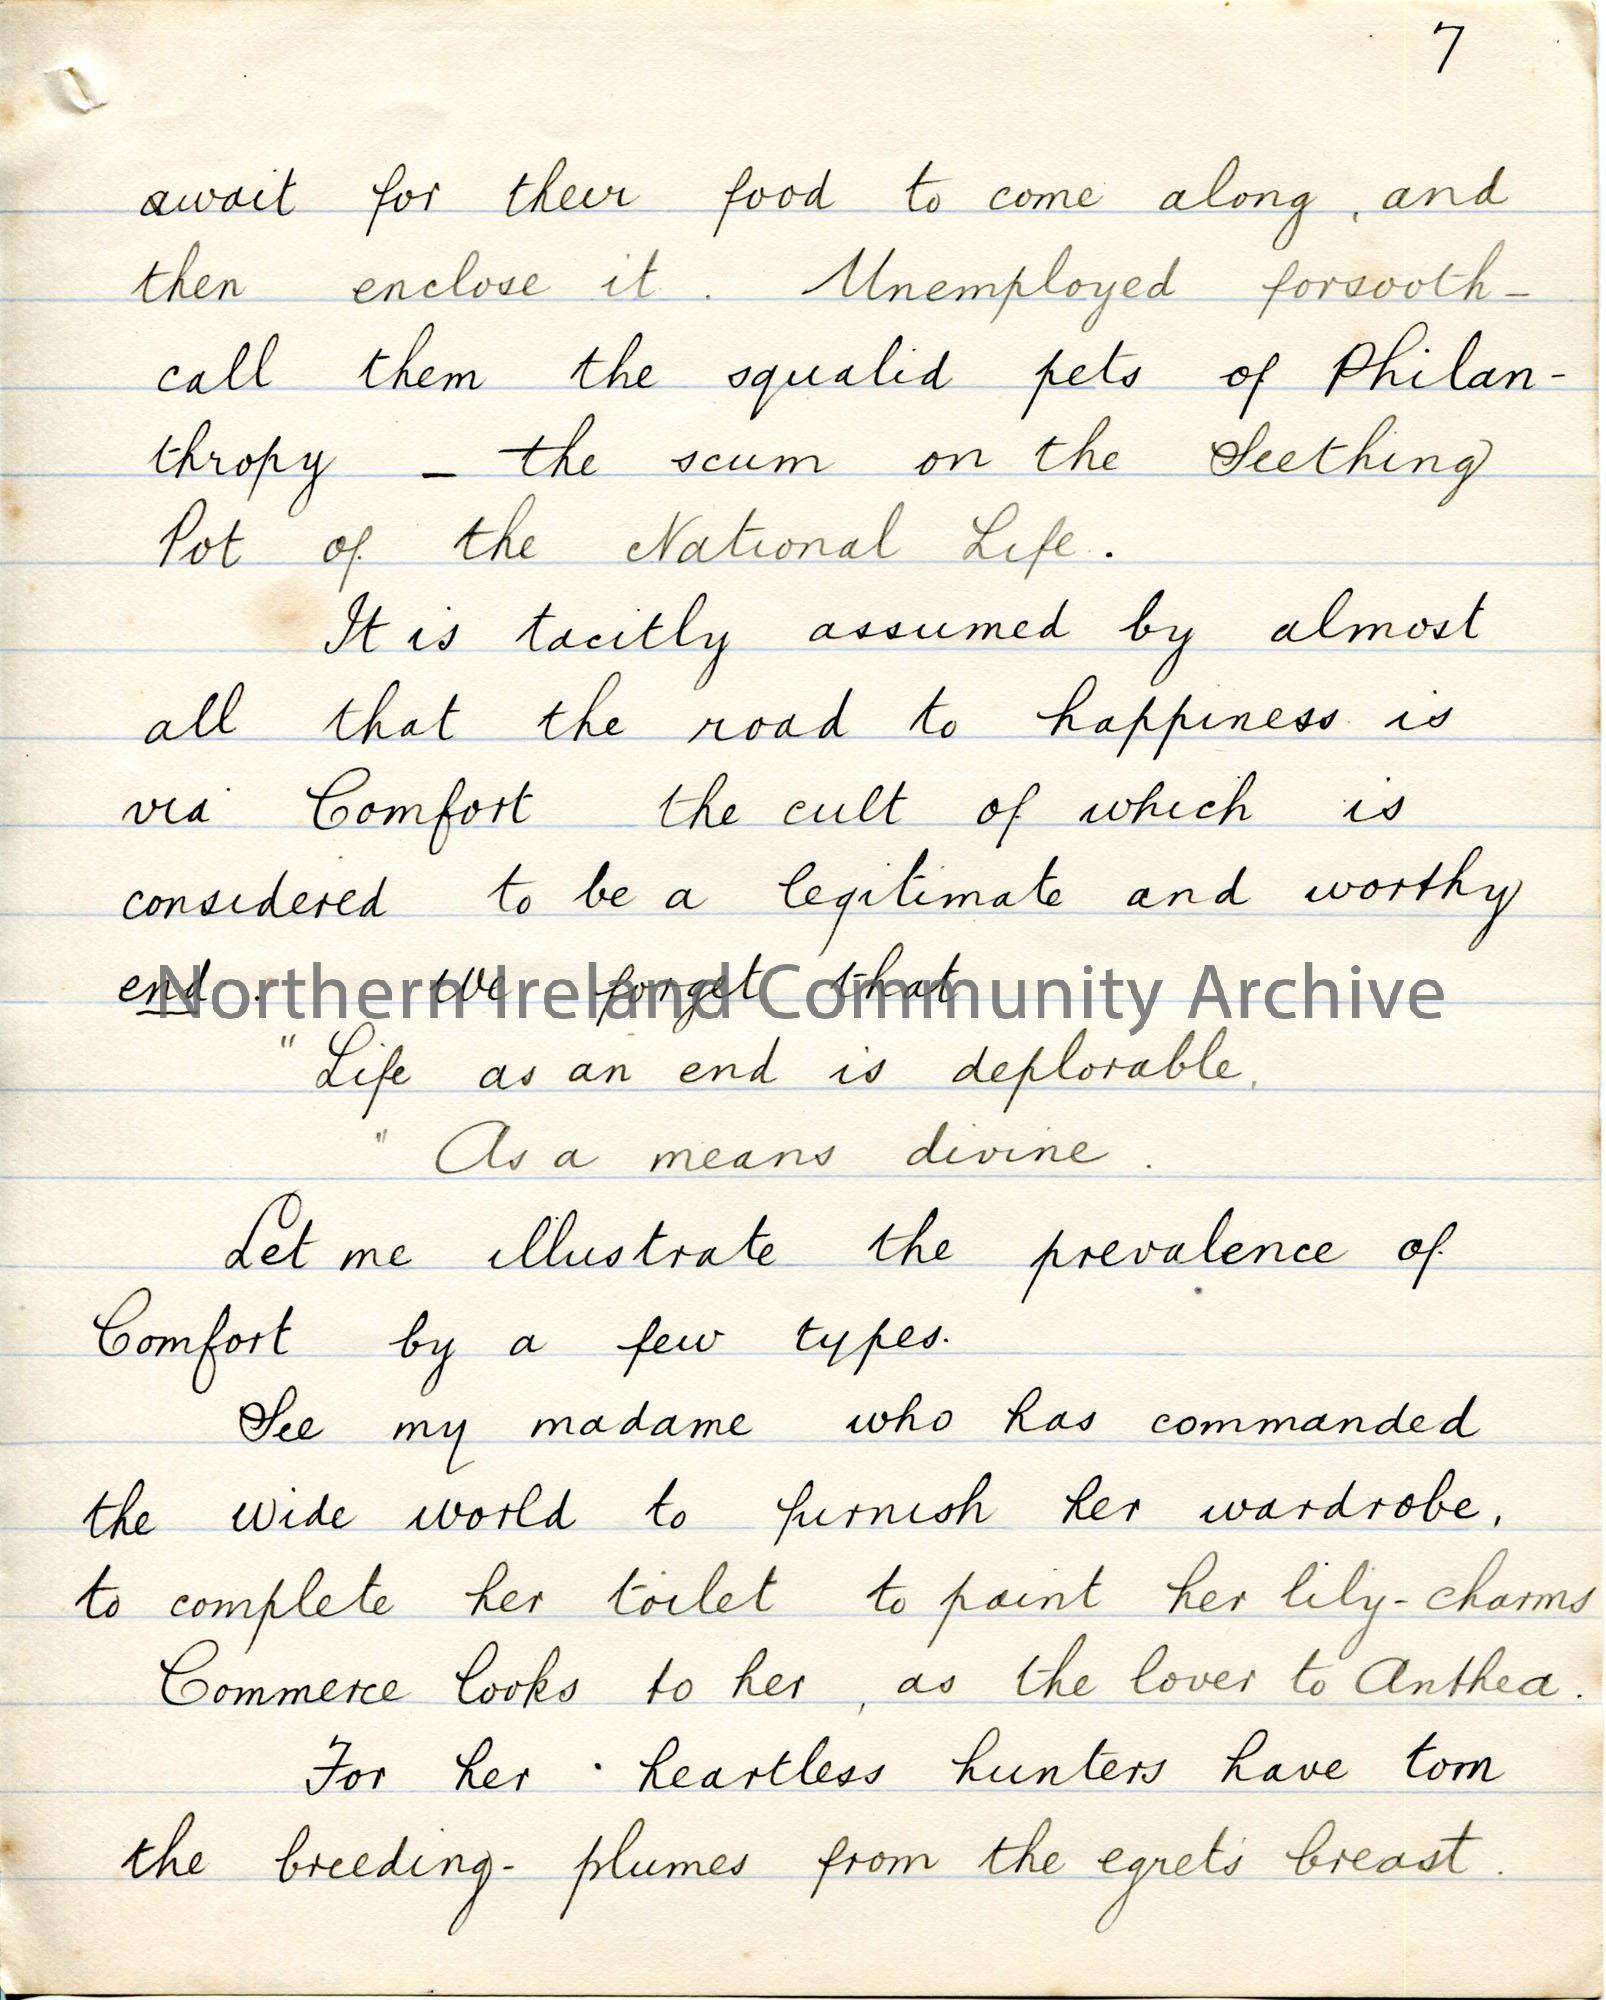 7
await for their food to come along, and
then enclose it. Unemployed forsooth -
call them the squalid pets of Philan-
thropy - the scum on the Seething
Pot of the National Life.
It is tacitly assumed by almost
all that the road to happiness is
via Comfort the cult of which is
considered to be a legitimate and worthy
end. We forget that
Northern Ireland Community Archive
"Life as an end is deplorable,
" As a means divine.
Let me illustrate the prevalence of
Comfort by a few types.
See my madame who has commanded
the wide world to furnish her wardrobe,
to complete her toilet to paint her lily-charms
Commerce looks to her, as the lover to Anthea.
For her heartless hunters have torn
the breeding-plumes from the egret's breast.